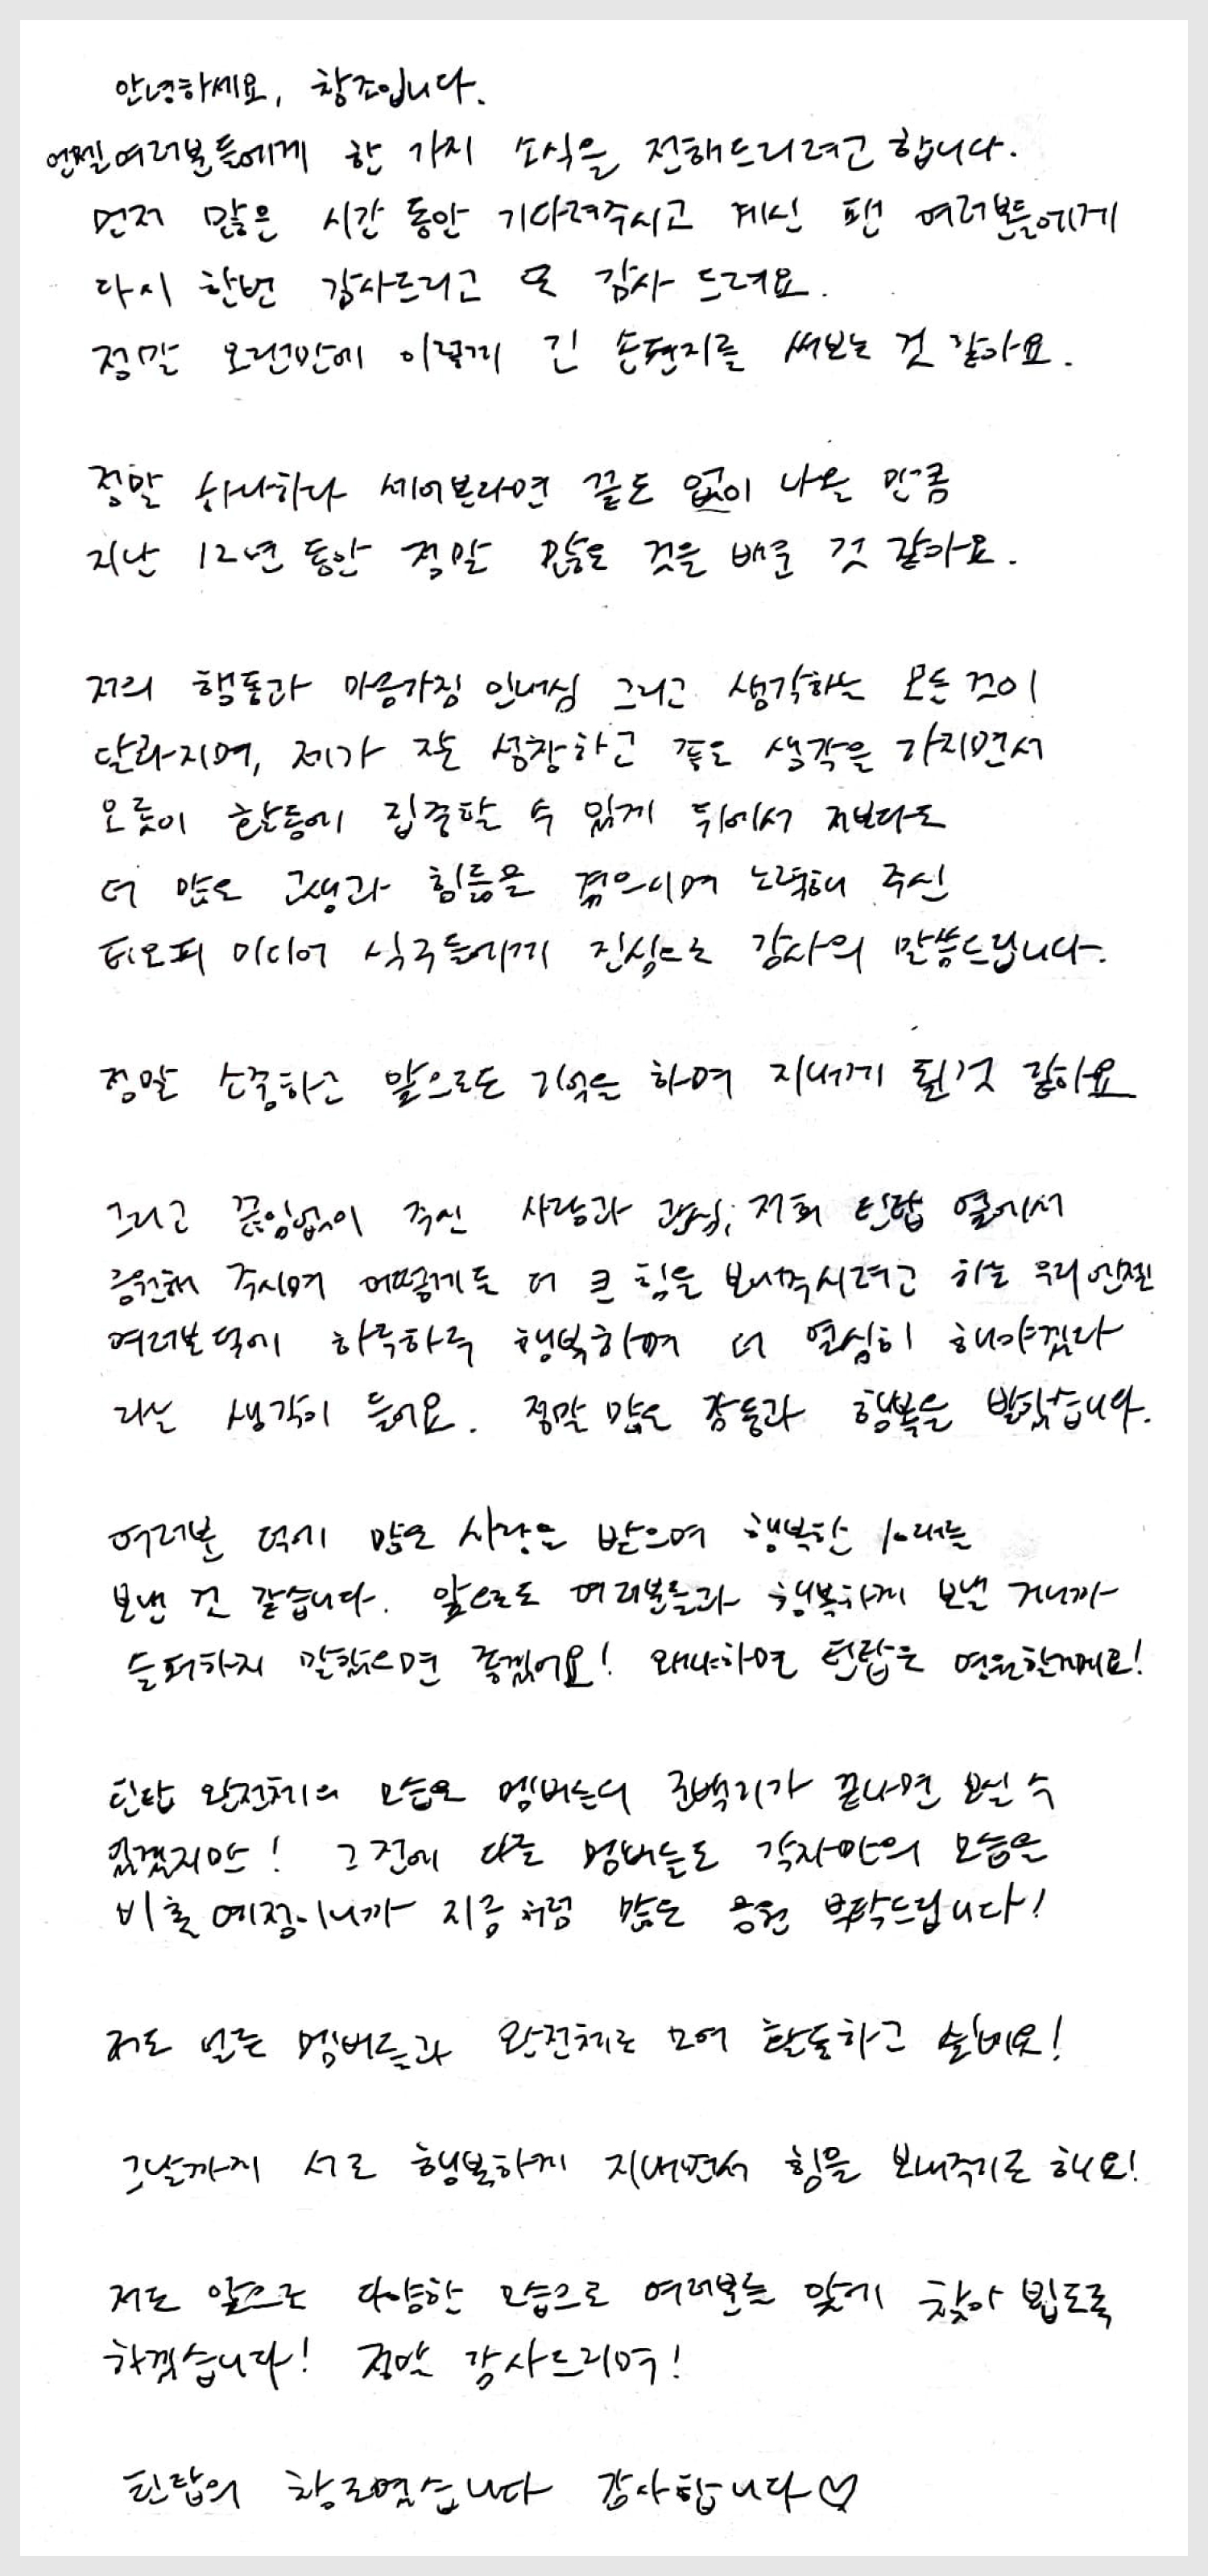 안녕하세요, 창조입니다.
엔젤여러분들에게 한 가지 소식을 전해드리려고 합니다.
먼저 많은 시간 동안 기다려주시고 계신 팬 여러분들에게
다시 한번 감사드리고 또 감사 드려요.
정말 오랜만에 이렇게 긴 손편지를 써보는 것 같아요.
정말 하나하나 세어본다면 끝도 없이 나올 만큼
지난 12년 동안 정말 많은 것을 배운 것 같아요.
저의 행동과 마음가짐 인내심 그리고 생각하는 모든 것이
달라지며, 제가 잘 성장하고 좋은 생각을 가지면서
오롯이 활동에 집중할 수 있게 뒤에서 저보다도
더 많은 고생과 힘듦을 겪으시며 노력해 주신
티오피 미디어 식구들에게 진심으로 감사의 말씀드립니다.
정말 소중하고 앞으로도 기억을 하며 지내게 될 것 같아요
그리고 끊임없이 주신 사랑과 관심, 저희 틴탑 옆에서
응원해 주시며 어떻게든 더 큰 힘을 보내주시려고 하는 우리 엔젤
여러분 덕에 하루하루 행복하며 더 열심히 해야겠다
라는 생각이 들어요. 정말 많은 감동과 행복을 받았습니다.
여러분 덕에 많은 사랑을 받으며 행복한 10대를
보낸 것 같습니다. 앞으로도 여러분들과 행복하게 보낼 거니까
슬퍼하지 말았으면 좋겠어요! 왜냐하면 틴탑은 영원할거예요!
틴탑 완전체의 모습은 멤버들의 군백기가 끝나면 보실 수
있겠지만! 그 전에 다들 멤버들도 각자만의 모습을
비출 예정이니까 지금처럼 많은 응원 부탁드립니다!
저도 얼른 멤버들과 완전체로 모여 활동하고 싶네요!
그날까지 서로 행복하게 지내면서 힘을 보내주기로 해요!
저도 앞으로 다양한 모습으로 여러분들 앞에 찾아 뵙도록
하겠습니다! 정말 감사드리며!
틴탑의 창조였습니다 감사합니다♡